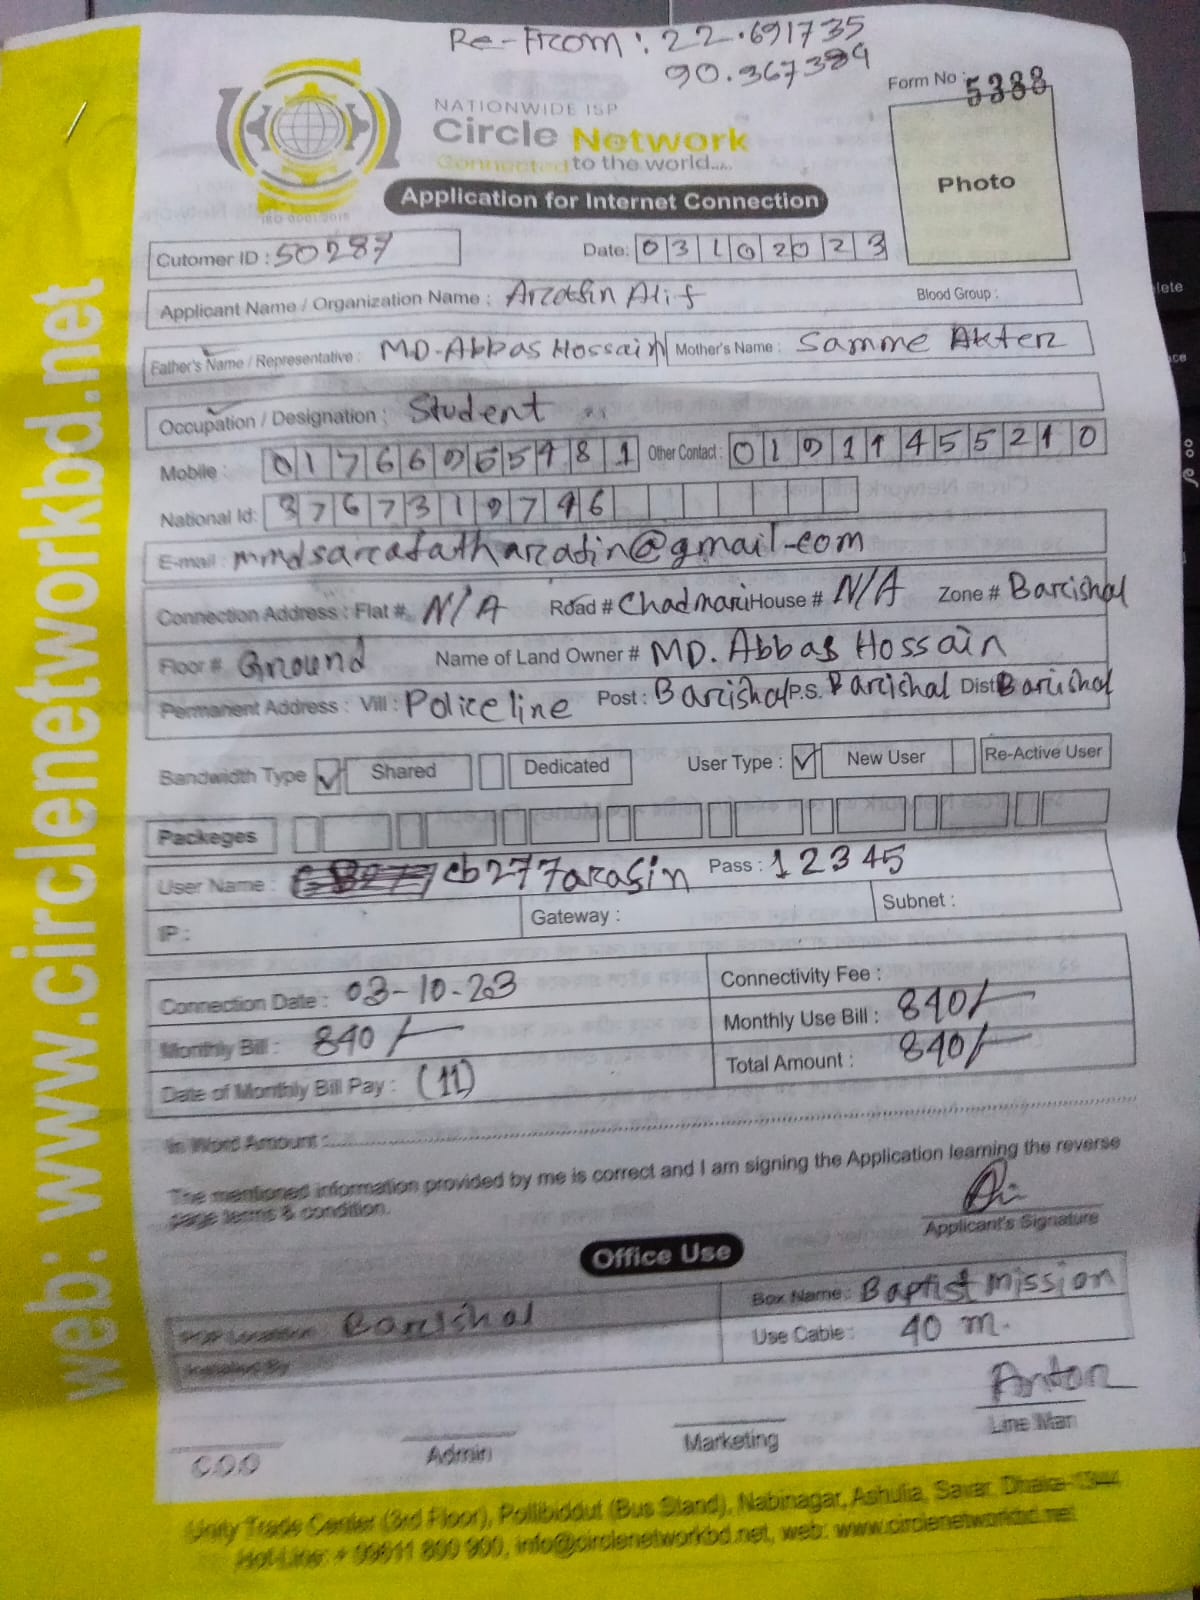 Re-From: 22.691735
90.367389
Form No: 5388
NATIONWIDE ISP
Circle Network
Connected to the world.....
Photo
Application for Internet Connection
ISO 9001:2015
Cutomer ID : 50287
Date: 03102023
Applicant Name / Organization Name : Arafin Alif
Blood Group :
Father's Name / Representative : MD. Abbas Hossain Mother's Name : Samme Akter
Occupation / Designation : Student
Mobile : Other Contact :
National Id:
E-mail :
Connection Address : Flat #. N/A Road # Chadmari House # N/A Zone # Barishal
Floor # Ground Name of Land Owner # MD. Abbas Hossain
Permanent Address : Vill : Policeline Post : Barishal P.S. Barishal Dist Barishal
Bandwidth Type Shared Dedicated User Type : New User Re-Active User
Packeges
User Name : cb277arafin Pass : 12345
IP : Gateway : Subnet :
Connection Date : 03-10-23 Connectivity Fee :
Monthly Bill : 840/- Monthly Use Bill : 840/-
Date of Monthly Bill Pay : (11) Total Amount : 840/-
In Word Amount :
The mentioned information provided by me is correct and I am signing the Application learning the reverse
page terms & condition.
Applicant's Signature
Office Use
Barishal Box Name : Baptist mission
Use Cable : 40 m.
Anton
C.O.O Admin Marketing Line Man
Unity Trade Center (3rd Floor), Pollibiddut (Bus Stand), Nabinagar, Ashulia, Savar, Dhaka-1344
Hot-Line: + 09611 800 900, info@circlenetworkbd.net, web: www.circlenetworkbd.net
web: www.circlenetworkbd.net